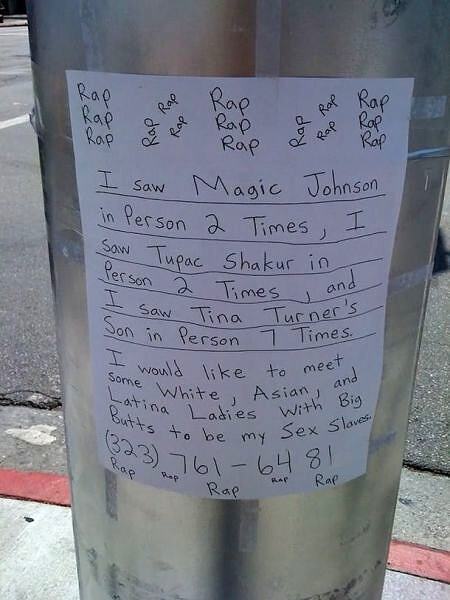 Rap Rap Rap Rap Rap Rap
Rap Rap Rap Rap Rap Rap
Rap Rap Rap
I saw Magic Johnson
in Person 2 Times, I
saw Tupac Shakur in
Person 2 Times, and
I saw Tina Turner's
Son in Person 7 Times.
I would like to meet
some White, Asian, and
Latina Ladies With Big
Butts to be my Sex Slaves.
(323) 761-6481
Rap Rap Rap Rap Rap